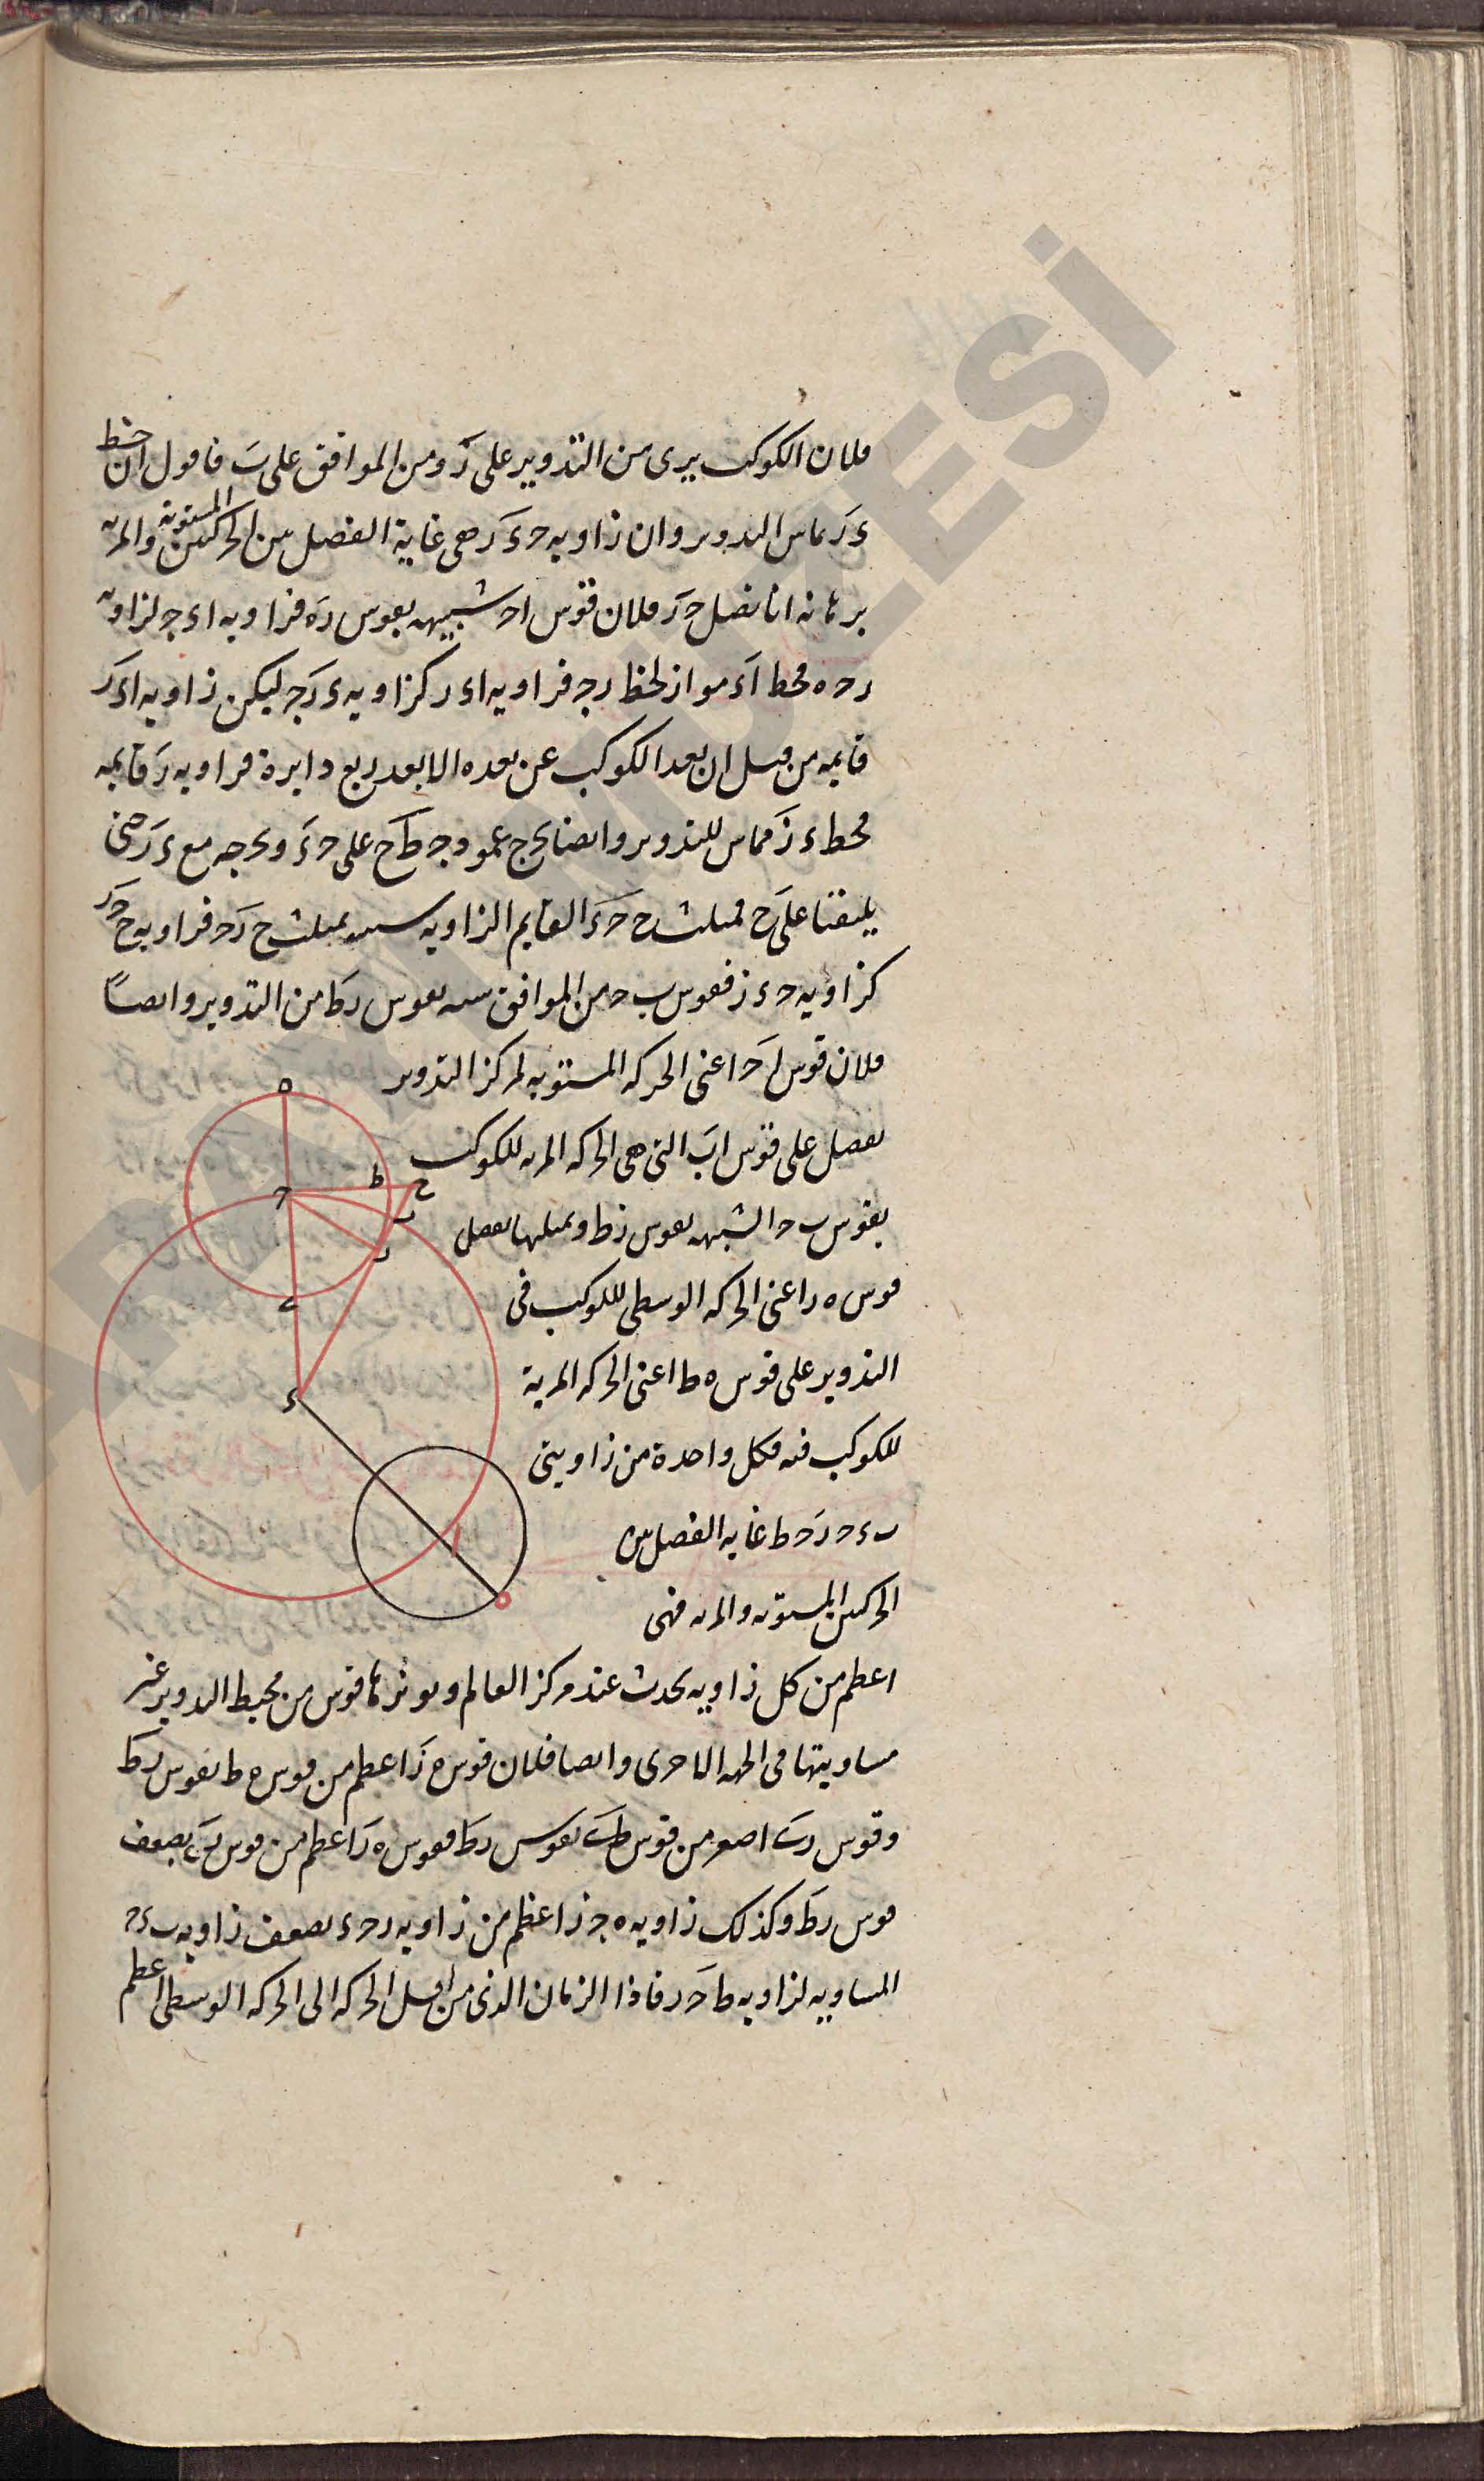 فلان الكوكب يرى من التدوير على ز ومن الموافق على ب فاقول ان خط
ء ز يماس التدوير وان زاوية ح ء ز هى غاية الفصل بين الحركتين المستوية والمرية
برهانه انا نصل ح ز فلان قوس ا ح شبيهه بقوس ز ه فزاوية ا ء ج لزاوية
ز ح ه فخط ا ء مواز لخط ز ج فزاوية ا ء ز كزاوية ء ز ج ليكن زاوية ا ء ز
قايمه من قبل ان بعد الكوكب عن بعده الابعد ربع دايرة فزاوية ز قايمه
فخط ء ز مماس للتدوير وايضا نخرج عمود ج ط ح على ح ء ونخرجه مع ء ز حتى
يلتقيا على ح فمثلث ح ح ء القايم الزاوية شبيه بمثلث ح ز ح فزاوية ح ح ز
كزاوية ح ء ز فقوس ب ح من الموافق شبيه بقوس ز ط من التدوير وايضاً
فلان قوس ا ح اعنى الحركة المستوية لمركز التدوير
تفصل على قوس ا ب التى هى الحركة المرية للكوكب
بقوس ب ح الشبيهه بقوس ز ط وبمثلها تفصل
قوس ه ز اعنى الحركة الوسطى للكوكب فى
التدوير على قوس ه ط اعنى الحركة المرية
للكوكب فيه فكل واحدة من زاويتى
ب ء ح ز ح ط غاية الفصل بين
الحركتين المستوية والمرية فهى
اعظم من كل زاوية يحدث عند مركز العالم ويوترها قوس من محيط التدوير غير
مساويتها فى الجهة الاخرى وايضا فلان قوس ه ز اعظم من قوس ه ط بقوس ز ط
وقوس ز ء اصغر من قوس ط ء بقوس ز ط فقوس ه ز اعظم من قوس ز ء بضعف
قوس ز ط وكذلك زاوية ه ج ز اعظم من زاوية ز ح ء بضعف زاوية ب ء ح
المساوية لزاوية ط ح ز فاذا الزمان الذى من اقل الحركة الى الحركة الوسطى اعظم
ه
ط
ح
ح
ب
ز
ء
ا
ه